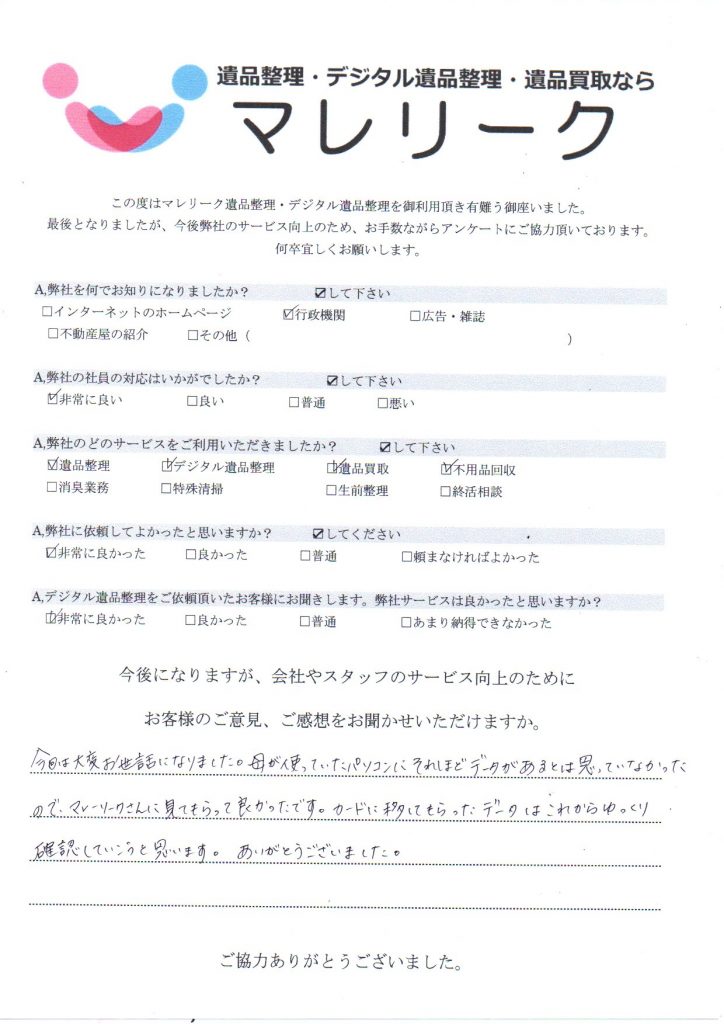 遺品整理・デジタル遺品整理・遺品買取なら
マレリーク
この度はマレリーク遺品整理・デジタル遺品整理を御利用頂き有難う御座いました。
最後となりましたが、今後弊社のサービス向上のため、お手数ながらアンケートにご協力頂いております。
何卒宜しくお願いします。
A,弊社を何でお知りになりましたか？ ☑して下さい
☐インターネットのホームページ ☑行政機関 ☐広告・雑誌
☐不動産屋の紹介 ☐その他（ ）
A,弊社の社員の対応はいかがでしたか？ ☑して下さい
☑非常に良い ☐良い ☐普通 ☐悪い
A,弊社のどのサービスをご利用いただきましたか？ ☑して下さい
☑遺品整理 ☑デジタル遺品整理 ☑遺品買取 ☑不用品回収
☐消臭業務 ☐特殊清掃 ☐生前整理 ☐終活相談
A,弊社に依頼してよかったと思いますか？ ☑してください
☑非常に良かった ☐良かった ☐普通 ☐頼まなければよかった
A,デジタル遺品整理をご依頼頂いたお客様にお聞きします。弊社サービスは良かったと思いますか？
☑非常に良かった ☐良かった ☐普通 ☐あまり納得できなかった
今後になりますが、会社やスタッフのサービス向上のために
お客様のご意見、ご感想をお聞かせいただけますか。
今回は大変お世話になりました。母が使っていたパソコンにそれほどデータがあるとは思っていなかった
ので、マレーリークさんに見てもらって良かったです。カードに移してもらったデータはこれからゆっくり
確認していこうと思います。 ありがとうございました。
ご協力ありがとうございました。